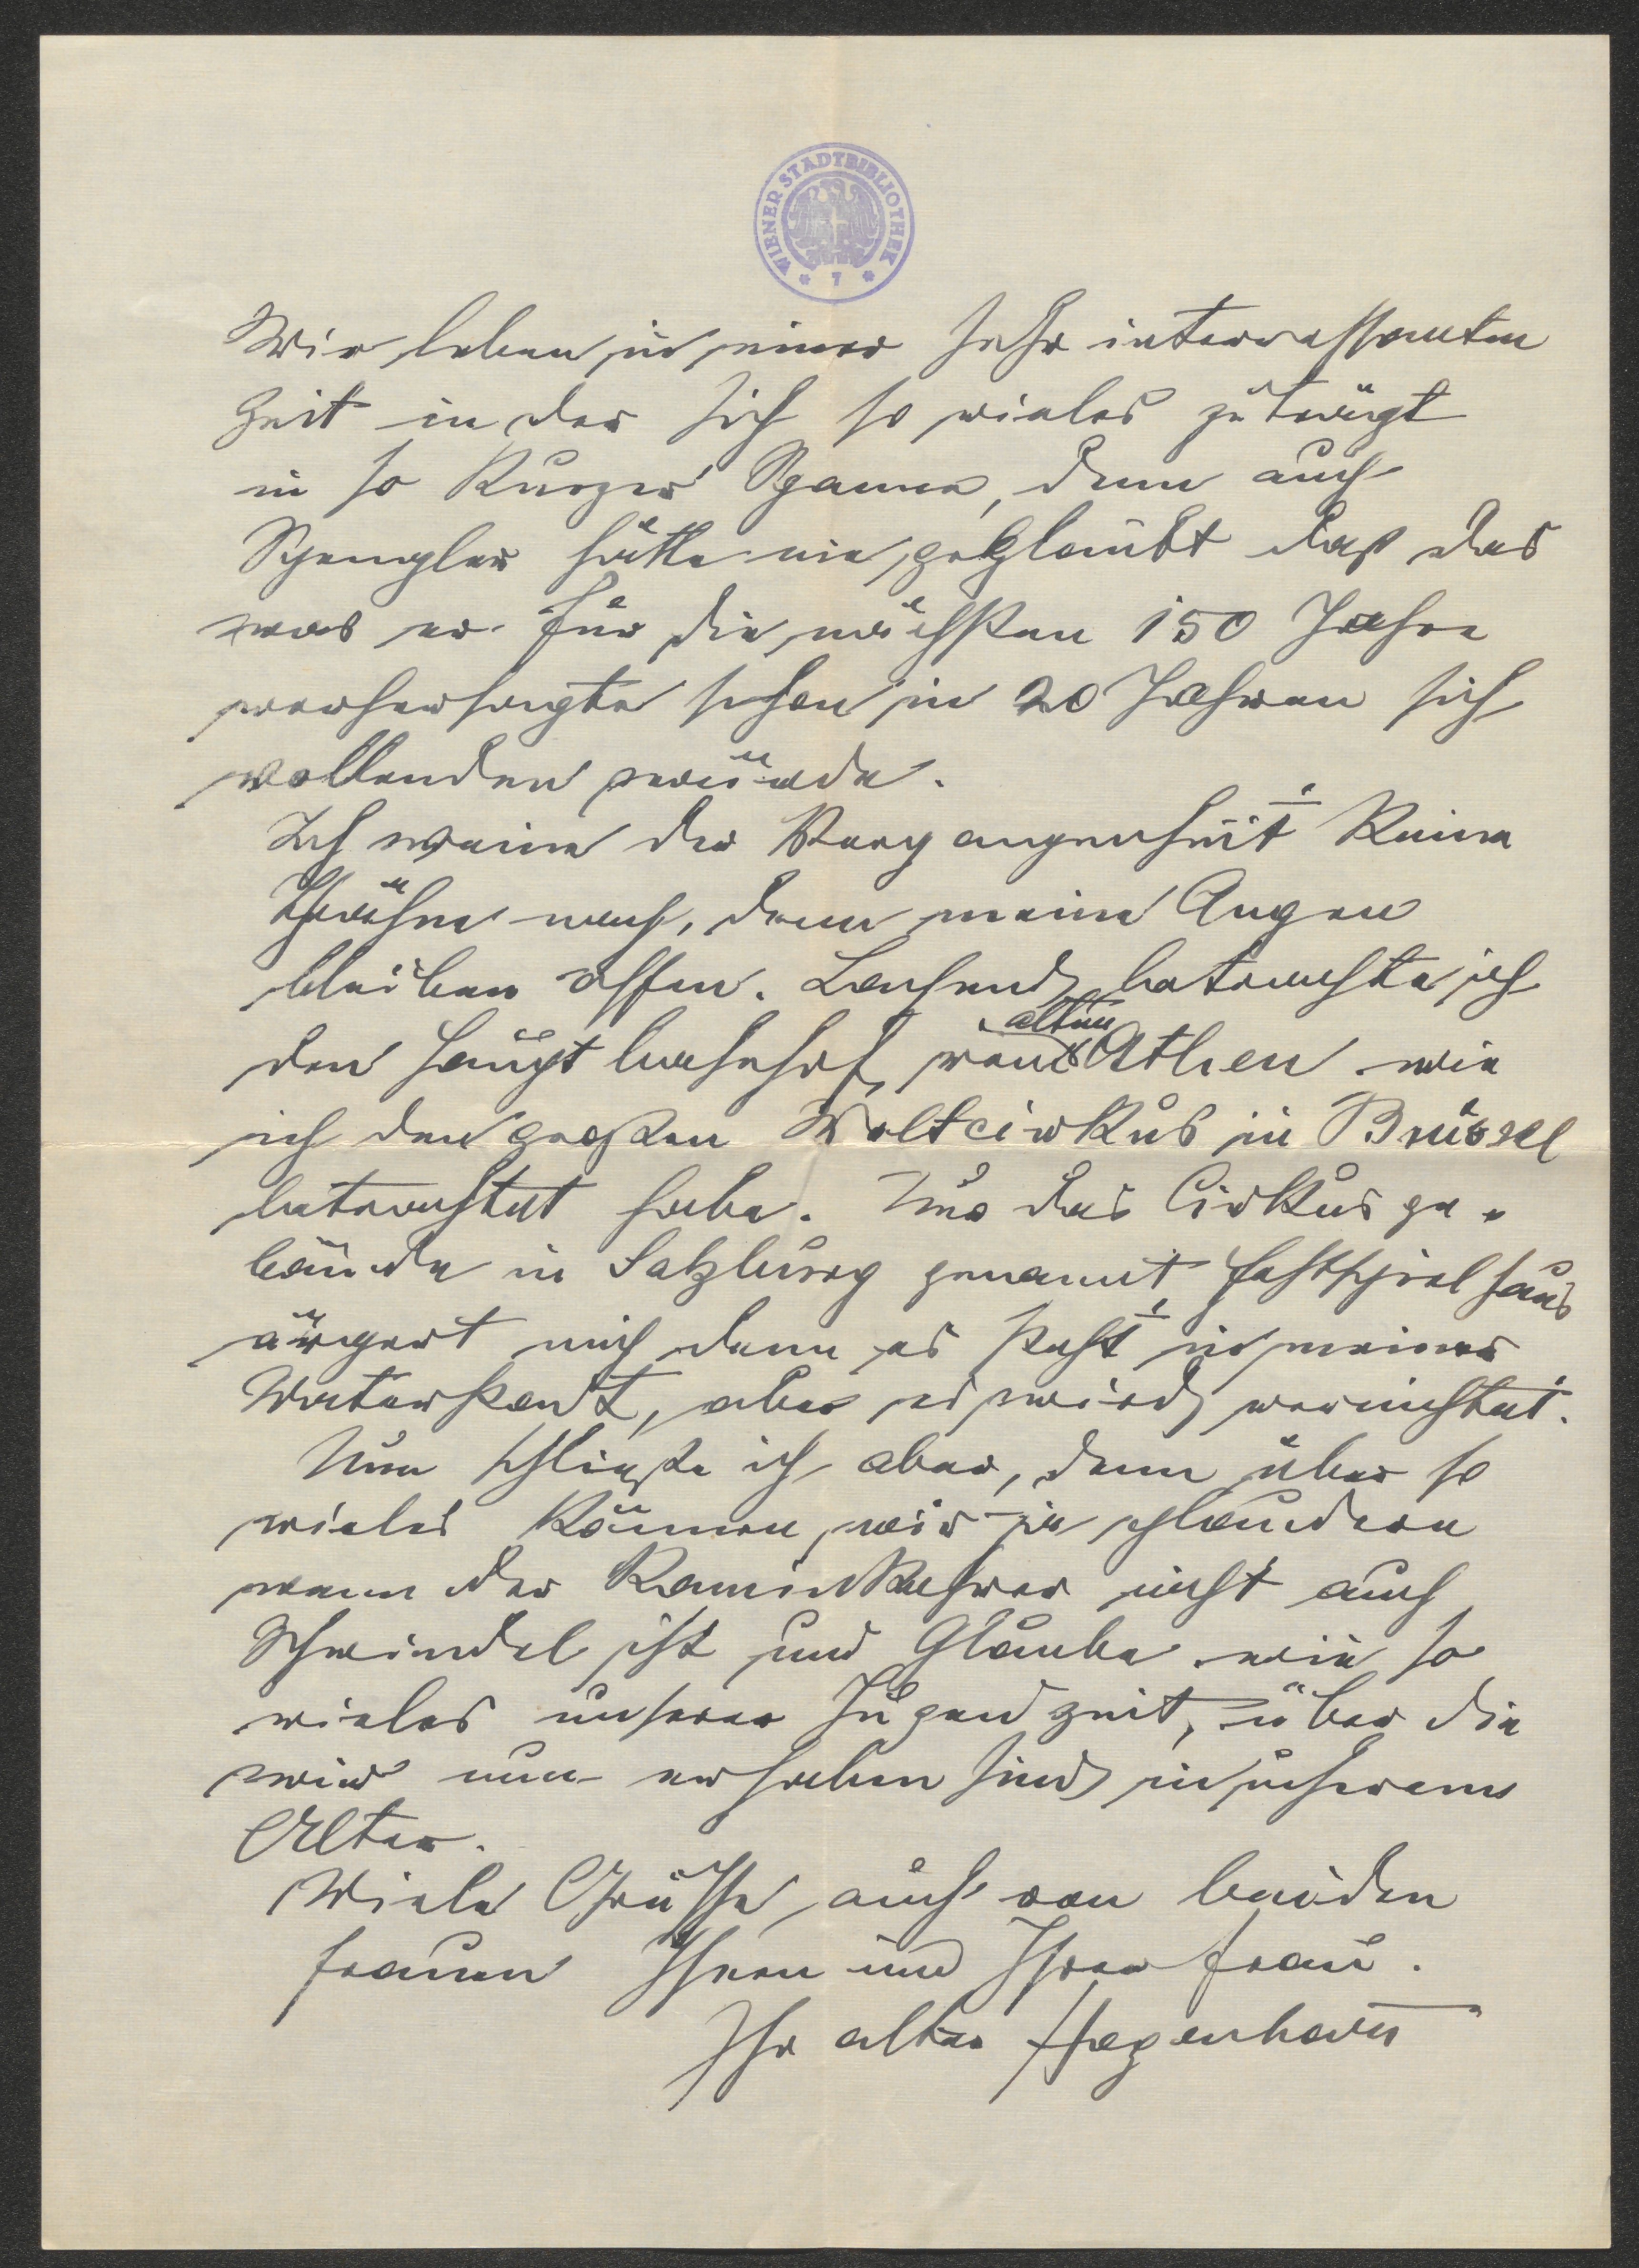 WIENER STADTBIBLIOTHEK
* 7 *
Wir leben in einer sehr interressanten
Zeit in der sich so vieles zuträgt
in so kurzer Spanne, denn auch
Spengler hätte nie geglaubt daß das
was er für die nächsten 150 Jahre
vorhersagte schon in 20 Jahren sich
vollenden würde.
Ich weine der Vergangenheit keine
Thräne nach, denn meine Augen
bleiben offen. Lachend betrachte ich
den Hauptbahnhof von
alten
Athen wie
ich den großen Weltcirkus in Brüssel
betrachtet habe. Nur das Cirkusge-
bäude in Salzburg genannt Festspielhaus
ärgert mich denn es steht in meiner
Vaterstadt, aber es wird vernichtet.
Nun schließe ich aber, denn über so
vieles können wir ja plaudern
wenn der Kaminkehrer nicht auch
Schwindel ist und Glaube wie so
vieles unserer Jugendzeit, über die
wir nun erhaben sind in unserem
Alter.
Viele Grüsse auch von beiden
Frauen Ihnen und Ihrer Frau.
Ihr alter Hegenbarth